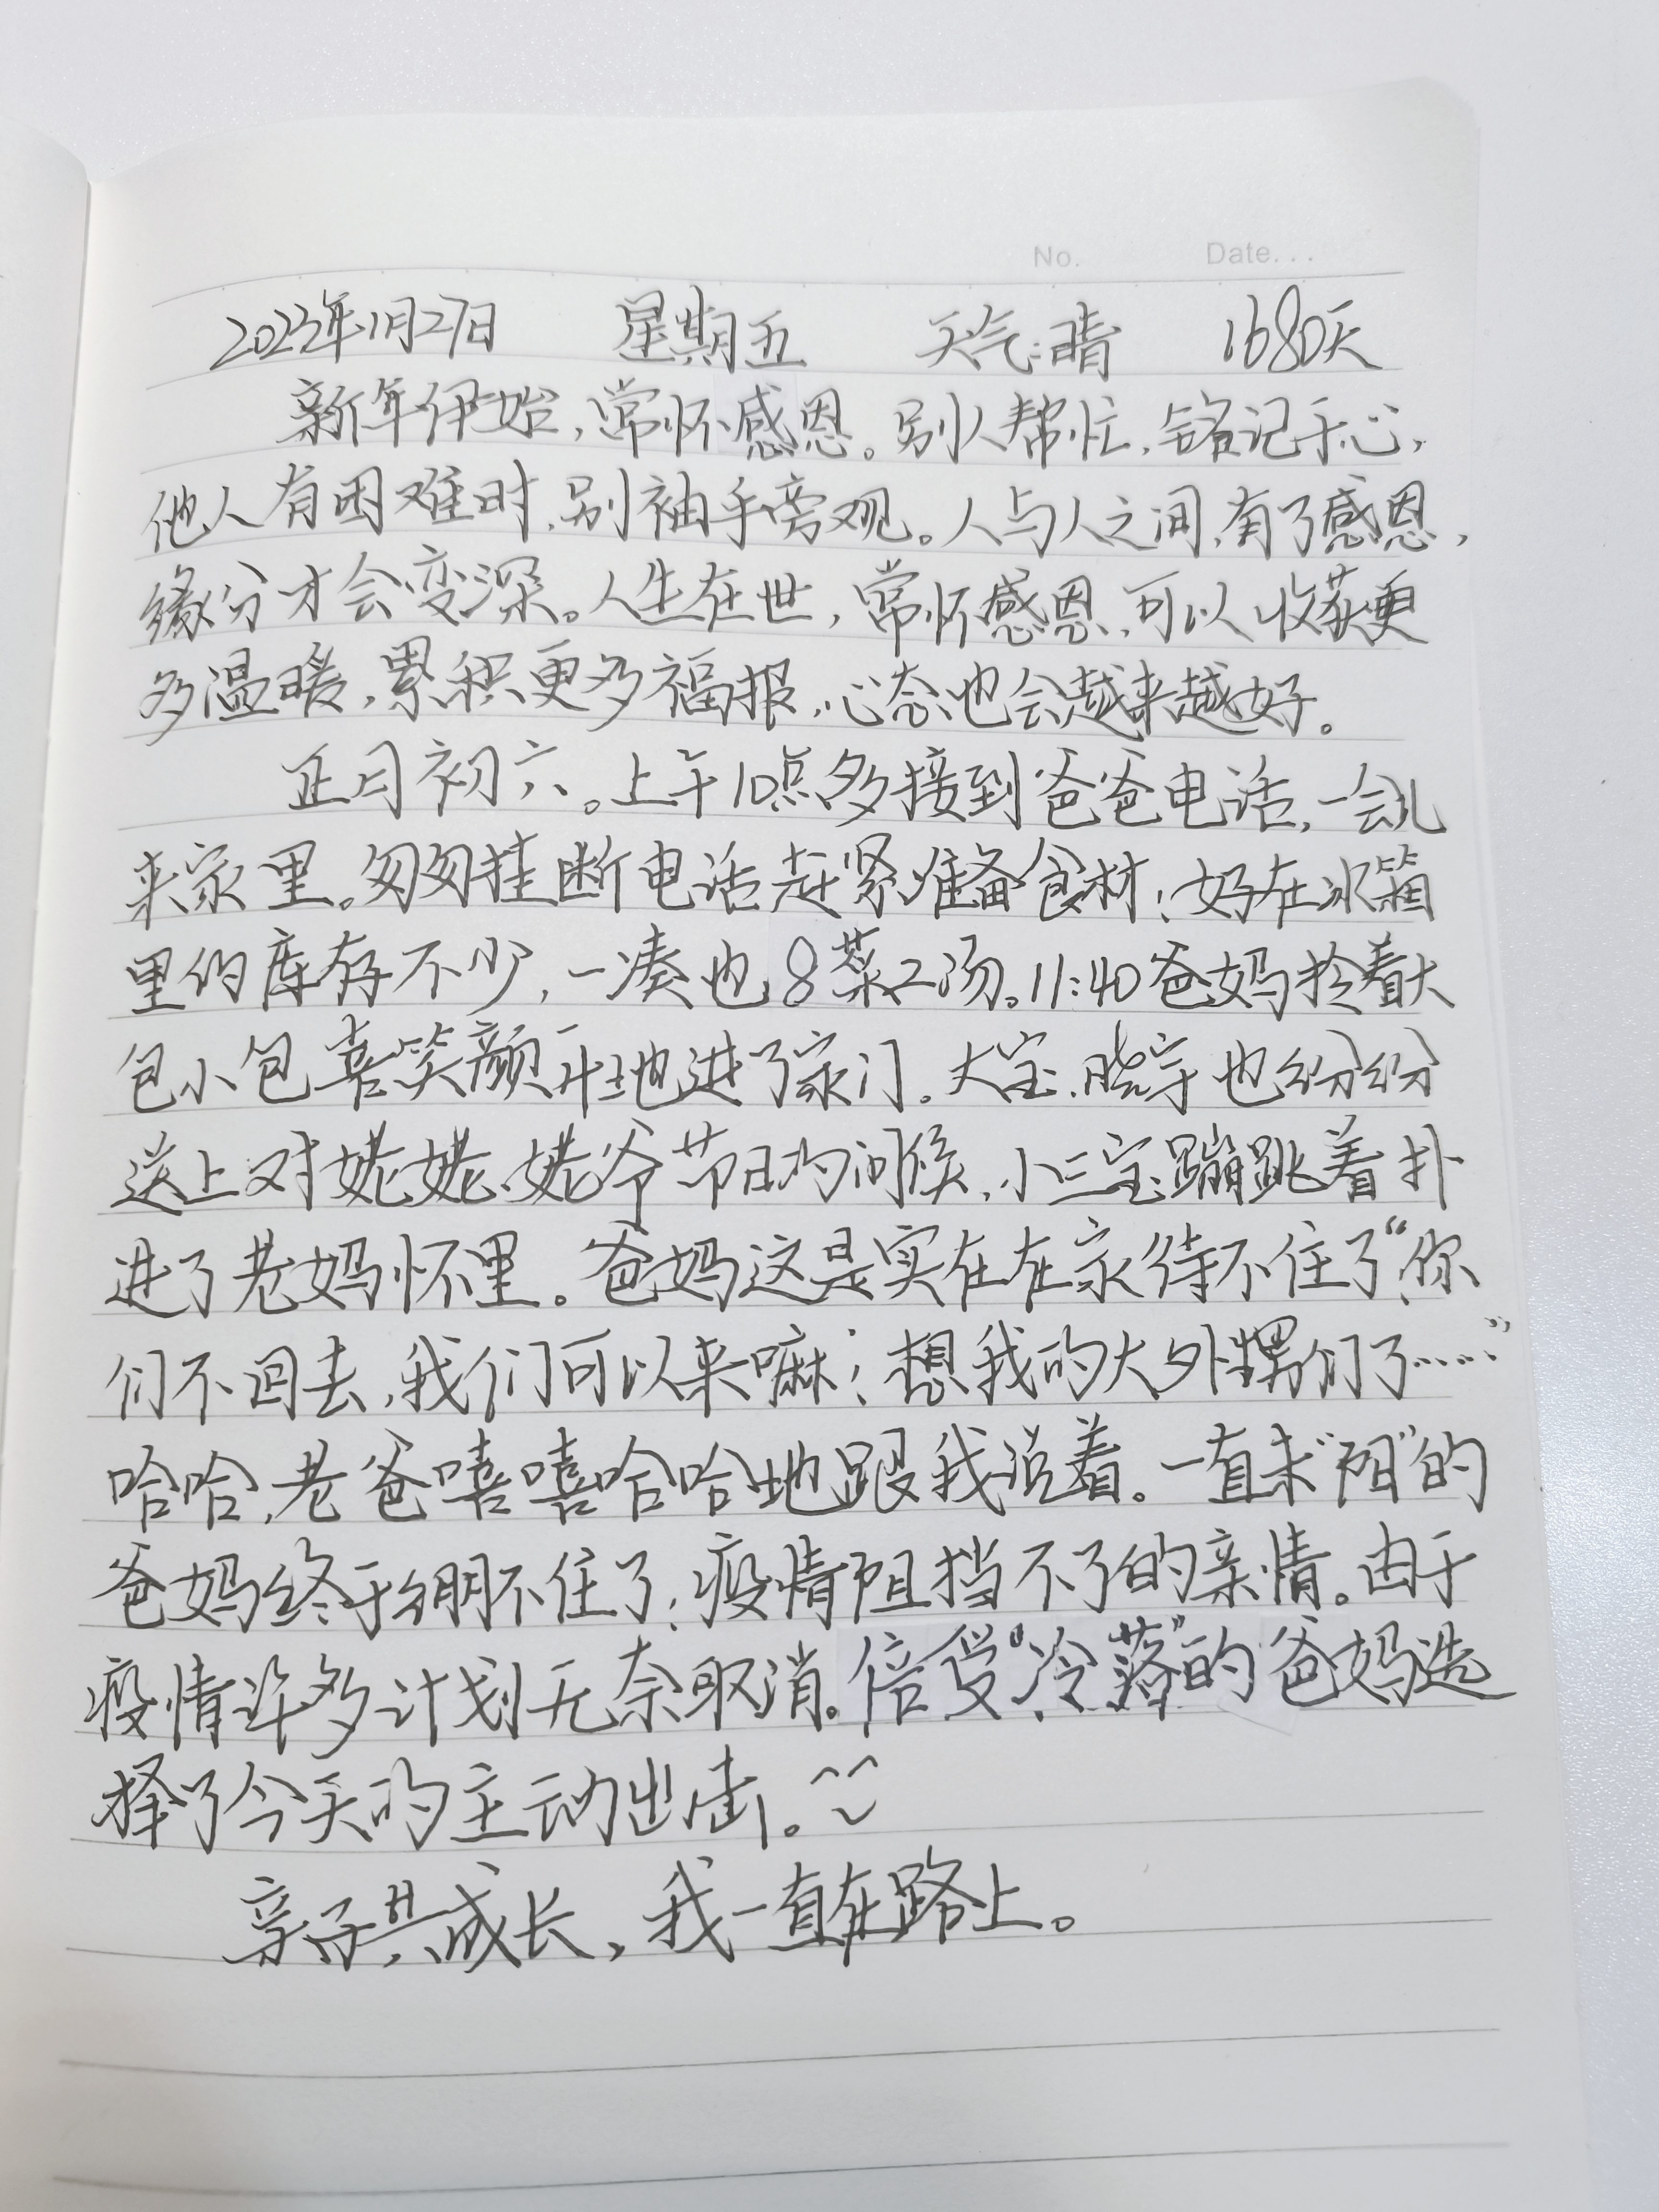 No. Date...
2023年1月27日 星期五 天气:晴 1680天
新年伊始,常怀感恩。别人帮忙,铭记于心,
他人有困难时,别袖手旁观。人与人之间,有了感恩,
缘分才会变深。人生在世,常怀感恩,可以收获更
多温暖,累积更多福报,心态也会越来越好。
正月初六。上午10点多接到爸爸电话,一会儿
来家里。匆匆挂断电话赶紧准备食材;好在冰箱
里的库存不少,一凑也8菜2汤。11:40爸妈拎着大
包小包喜笑颜开地进了家门。大宝、晓宇也纷纷
送上对姥姥、姥爷节日的问候,小三宝蹦跳着扑
进了老妈怀里。爸妈这是实在在家待不住了“你
们不回去,我们可以来嘛;想我的大外甥们了……”
哈哈,老爸嘻嘻哈哈地跟我说着。一直未“阳”的
爸妈终于绷不住了;疫情阻挡不了的亲情。由于
疫情许多计划无奈取消。倍受“冷落”的爸妈选
择了今天的主动出击。
亲子共成长,我一直在路上。